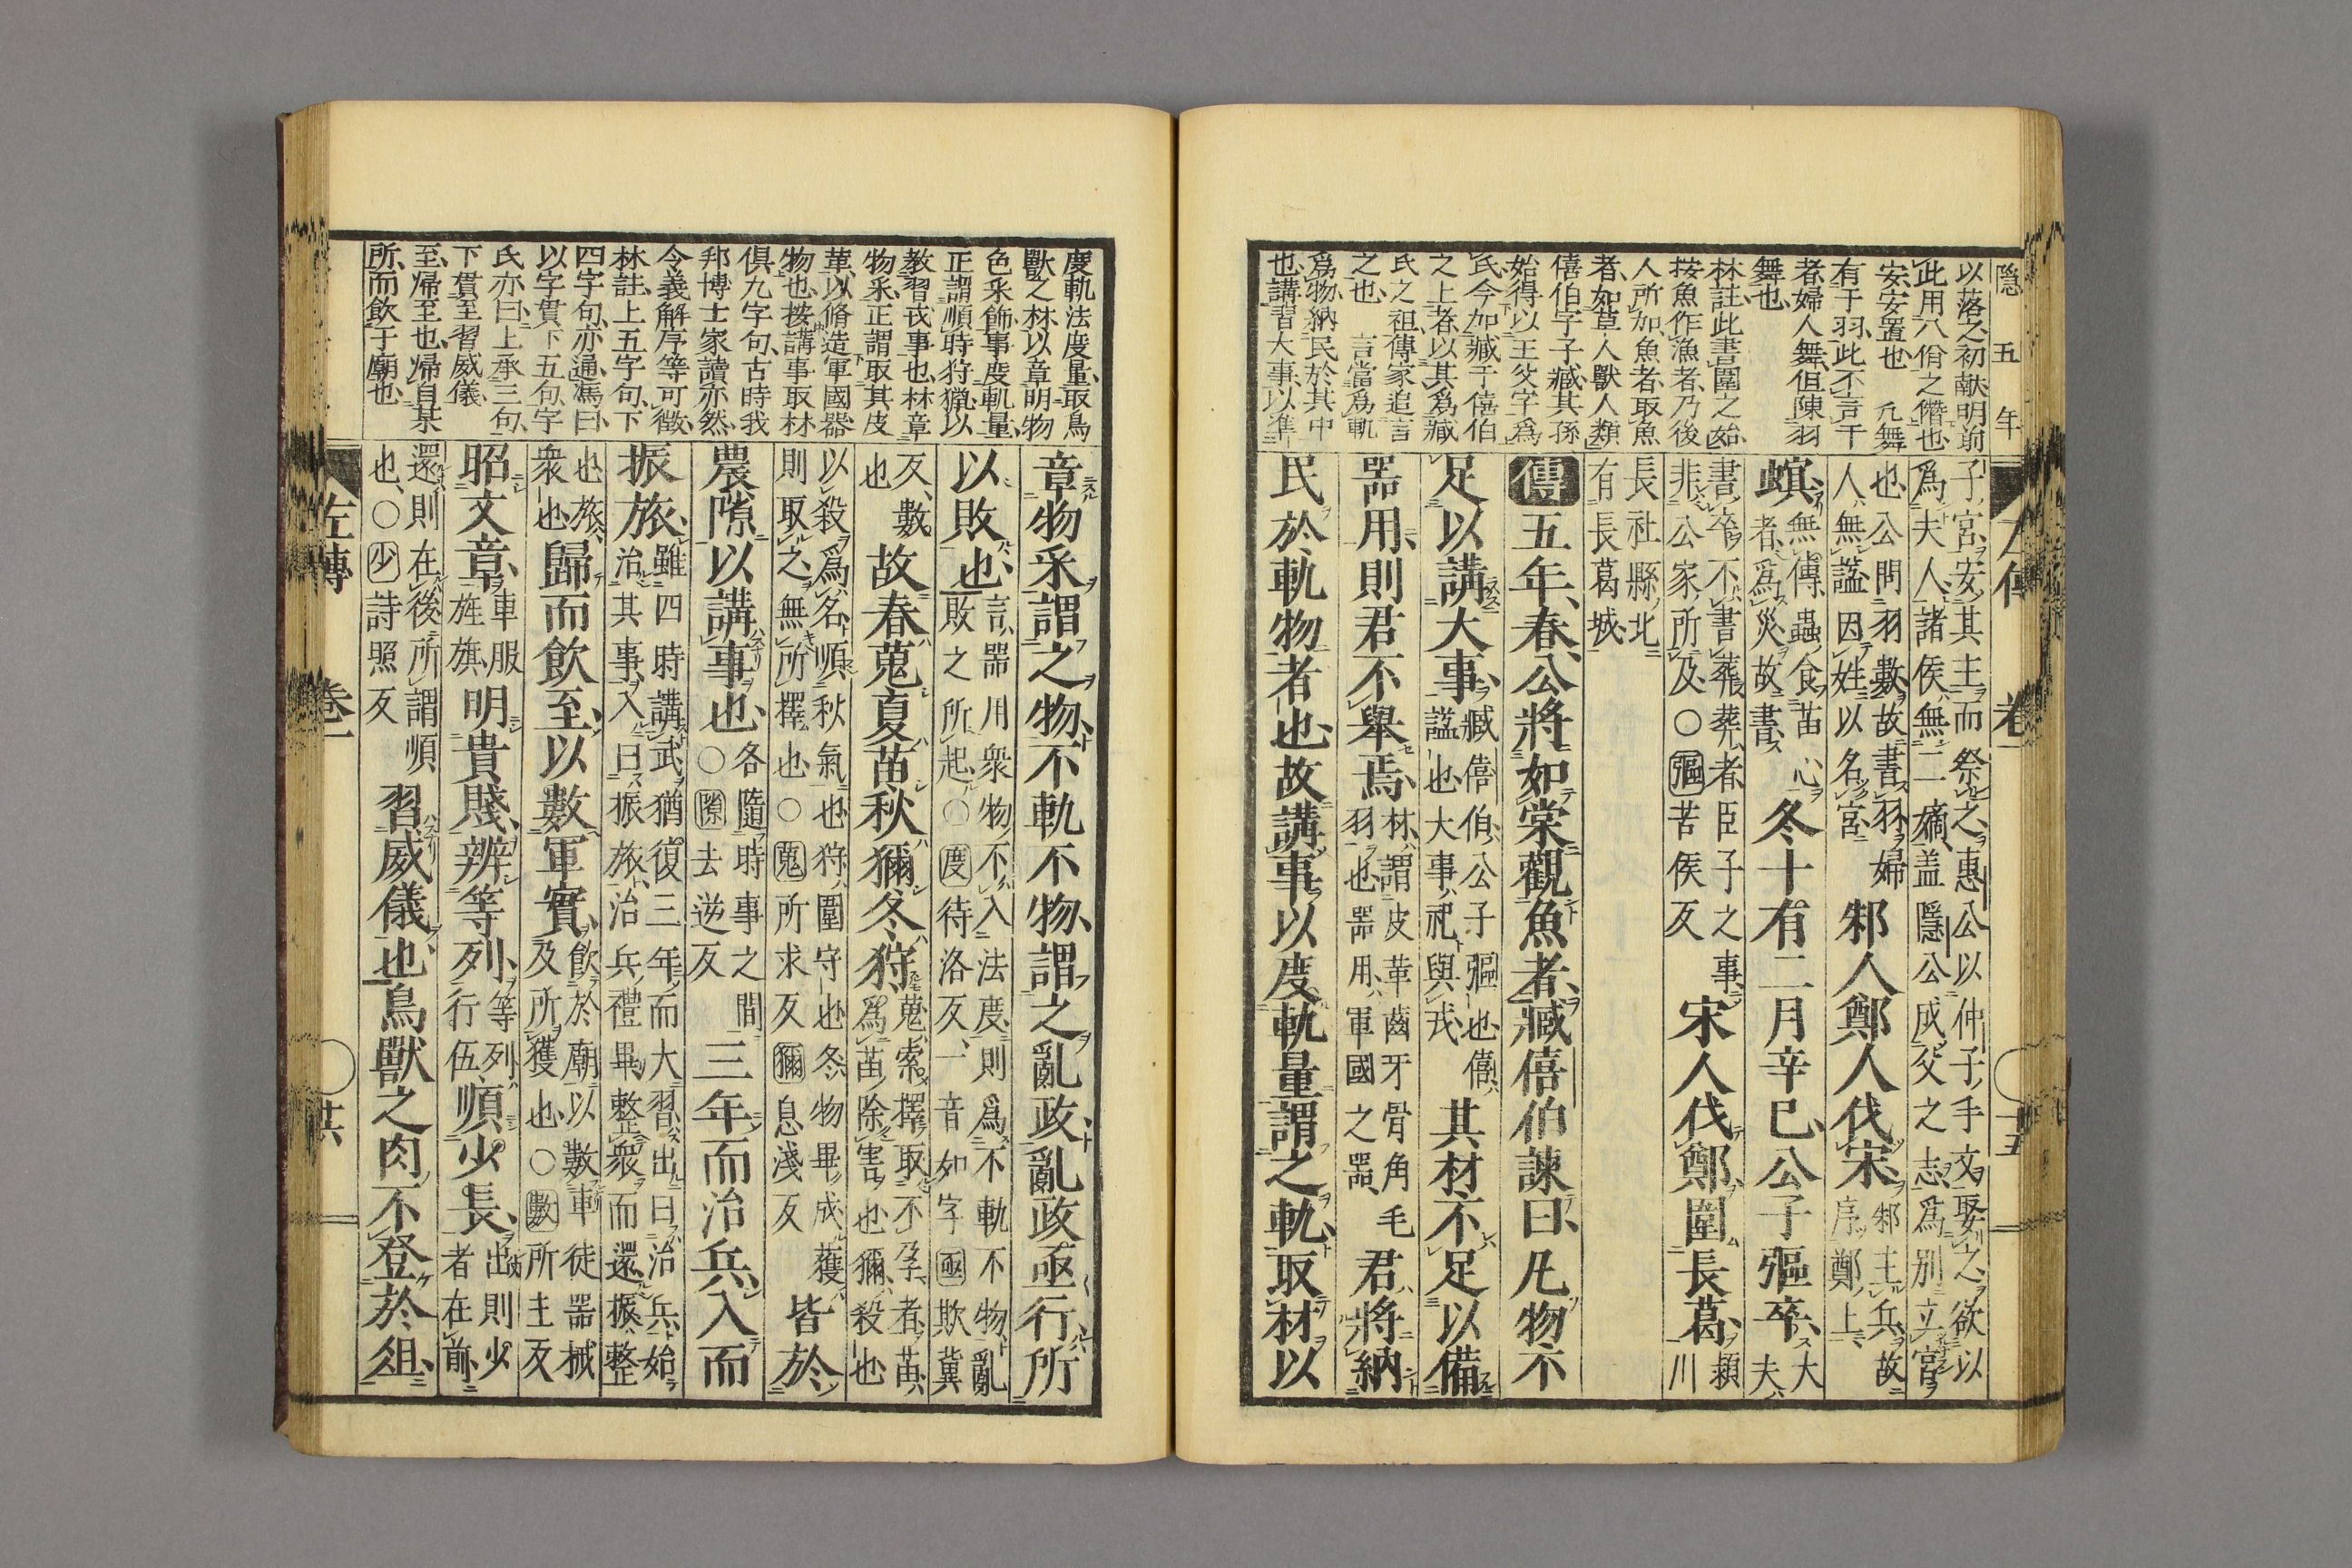 隱五年
以落之初献明前
此用八佾之僭也
安安置也 凡舞
有于羽此不言干
者婦人舞但陳羽
舞也
林註此書圍之始
按魚作漁者乃後
人所加魚者取魚
者如草人獸人類
僖伯字子臧其孫
始得以王父字爲
氏今加臧于僖伯
之上者以其爲臧
氏之祖傳家追言
之也 言當爲軌
爲物納民於其中
也講習大事以準
左傳 卷一 十五
子宮安其主而祭之惠公以仲子手文娶之欲以
爲夫人諸侯無二嫡盖隱公成父之志爲別立宮
也公問羽數故書羽婦
人無謚因姓以名宮
邾人鄭人伐宋
邾主兵故
序鄭上
螟
無傳蟲食苗心
者爲災故書
冬十有二月辛巳公子彄卒
大
夫
書卒不書葬葬者臣子之事
非公家所及○彄苦侯反
宋人伐鄭圍長葛
頴
川
長社縣北
有長葛城
傳五年春公將如棠觀魚者臧僖伯諫曰凡物不
足以講大事
臧僖伯公子彄也僖
謚也大事祀與戎
其材不足以備
器用則君不舉焉
材謂皮革齒牙骨角毛
羽也器用軍國之器
君將納
民於軌物者也故講事以度軌量謂之軌取材以
度軌法度量取鳥
獸之材以章明物
色采飾事度軌量
正謂順時狩獵以
教習戎事也林章
物采正謂取其皮
革以脩造軍國器
物也按講事取材
俱九字句古時我
邦博士家讀亦然
令義解序等可徵
林註上五字句下
四字句亦通馮曰
以字貫下五句字
氏亦曰上承三句
下貫至習威儀
至帰至也帰自某
所而飲于廟也
章物采謂之物不軌不物謂之亂政亂政亟行所
以敗也
言器用衆物不入法度則爲不軌不物亂
敗之所起○度待洛反一音如字亟欺冀
反數
也
故春蒐夏苗秋獮冬狩
蒐索擇取不孕者苗
爲苗除害也獮殺也
以殺爲名順秋氣也狩圍守也冬物畢成獲
則取之無所擇也○蒐所求反獮息淺反
皆於
農隙以講事也
各隨時事之間
○隙去逆反
三年而治兵入而
振旅
雖四時講武猶復三年而大習出曰治兵始
治其事入曰振旅治兵禮畢整衆而還振整
也旅
衆也
歸而飲至以數軍實
飲於廟以數車徒器械
及所獲也○數所主反
昭文章
車服
旌旗
明貴賤辨等列
等列
行伍
順少長
出則少
者在前
還則在後所謂順
也○少詩照反
習威儀也鳥獸之肉不登於俎
左傳 卷一 十六